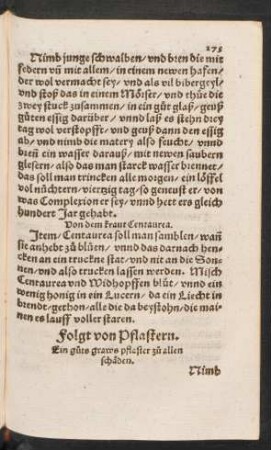 273
Nimb junge schwalben/vnd bren die mit
federn vñ mit allem/in einem newen hafen/
der wol vermacht sey/vnd als vil bibergeyl/
vnd stoß das in einem Mörser/vnd thůe die
zwey stuck zusammen/in ein gůt glaß/geuß
gůten essig darüber/vnnd laß es stehn diey
tag wol verstopfft/vnd geuß dann den essig
ab/vnd nimb die matery also feucht/vnnd
breñ ein wasser darauß/mit newen saubern
glesern/also das man starck wasser brennet/
das soll man trincken alle morgen/ein löffel
vol nüchtern/viertzig tag/so geneust er/von
was Complexion er sey/vnnd hett ers gleich
hundert Jar gehabt.
Von dem kraut Centaurea.
Item/Centaurea soll man samblen/wañ
sie anhebt zů blüen/vnnd das darnach hen-
cken an ein truckne stat/vnd nit an die Son-
nen/vnd also trucken lassen werden. Misch
Centaurea vnd Widhopffen blůt/vnnd ein
wenig honig in ein Lucern/da ein Liecht in
brendt/gethon/alle die da beystohn/die mai-
nen es lauff voller staren.
Folgt von Pflastern.
Ein gůts graws pflaster zů allen
schäden.
Nimb